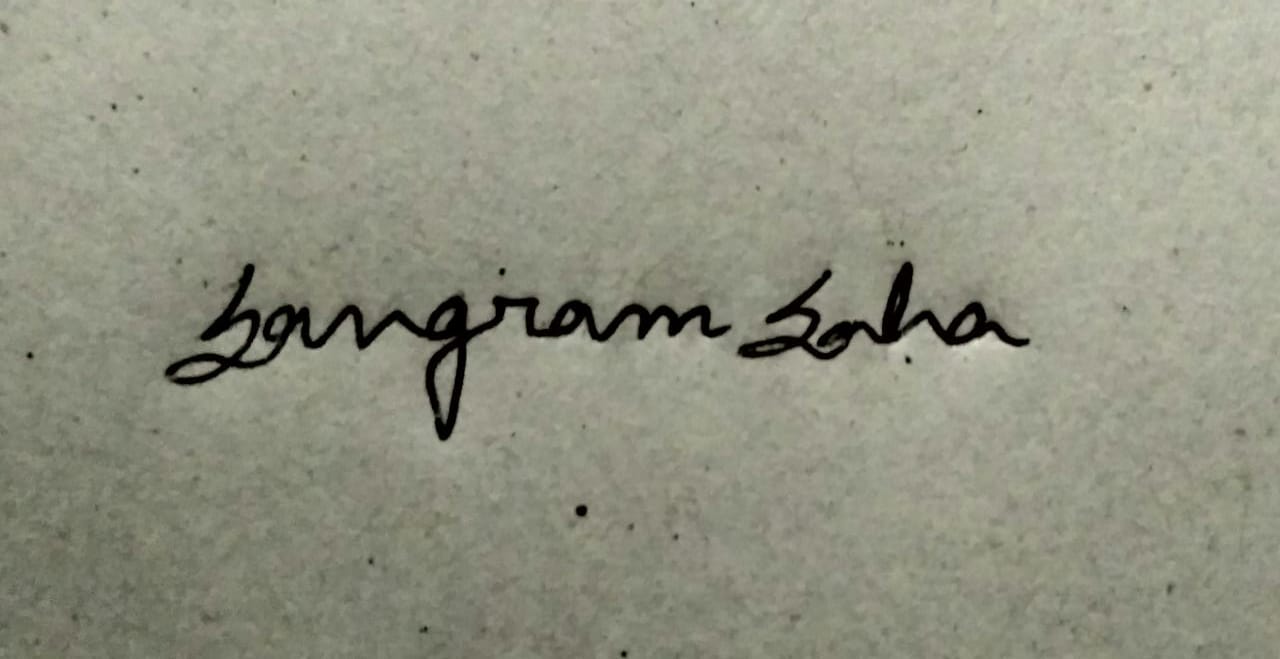 Sangram Saha